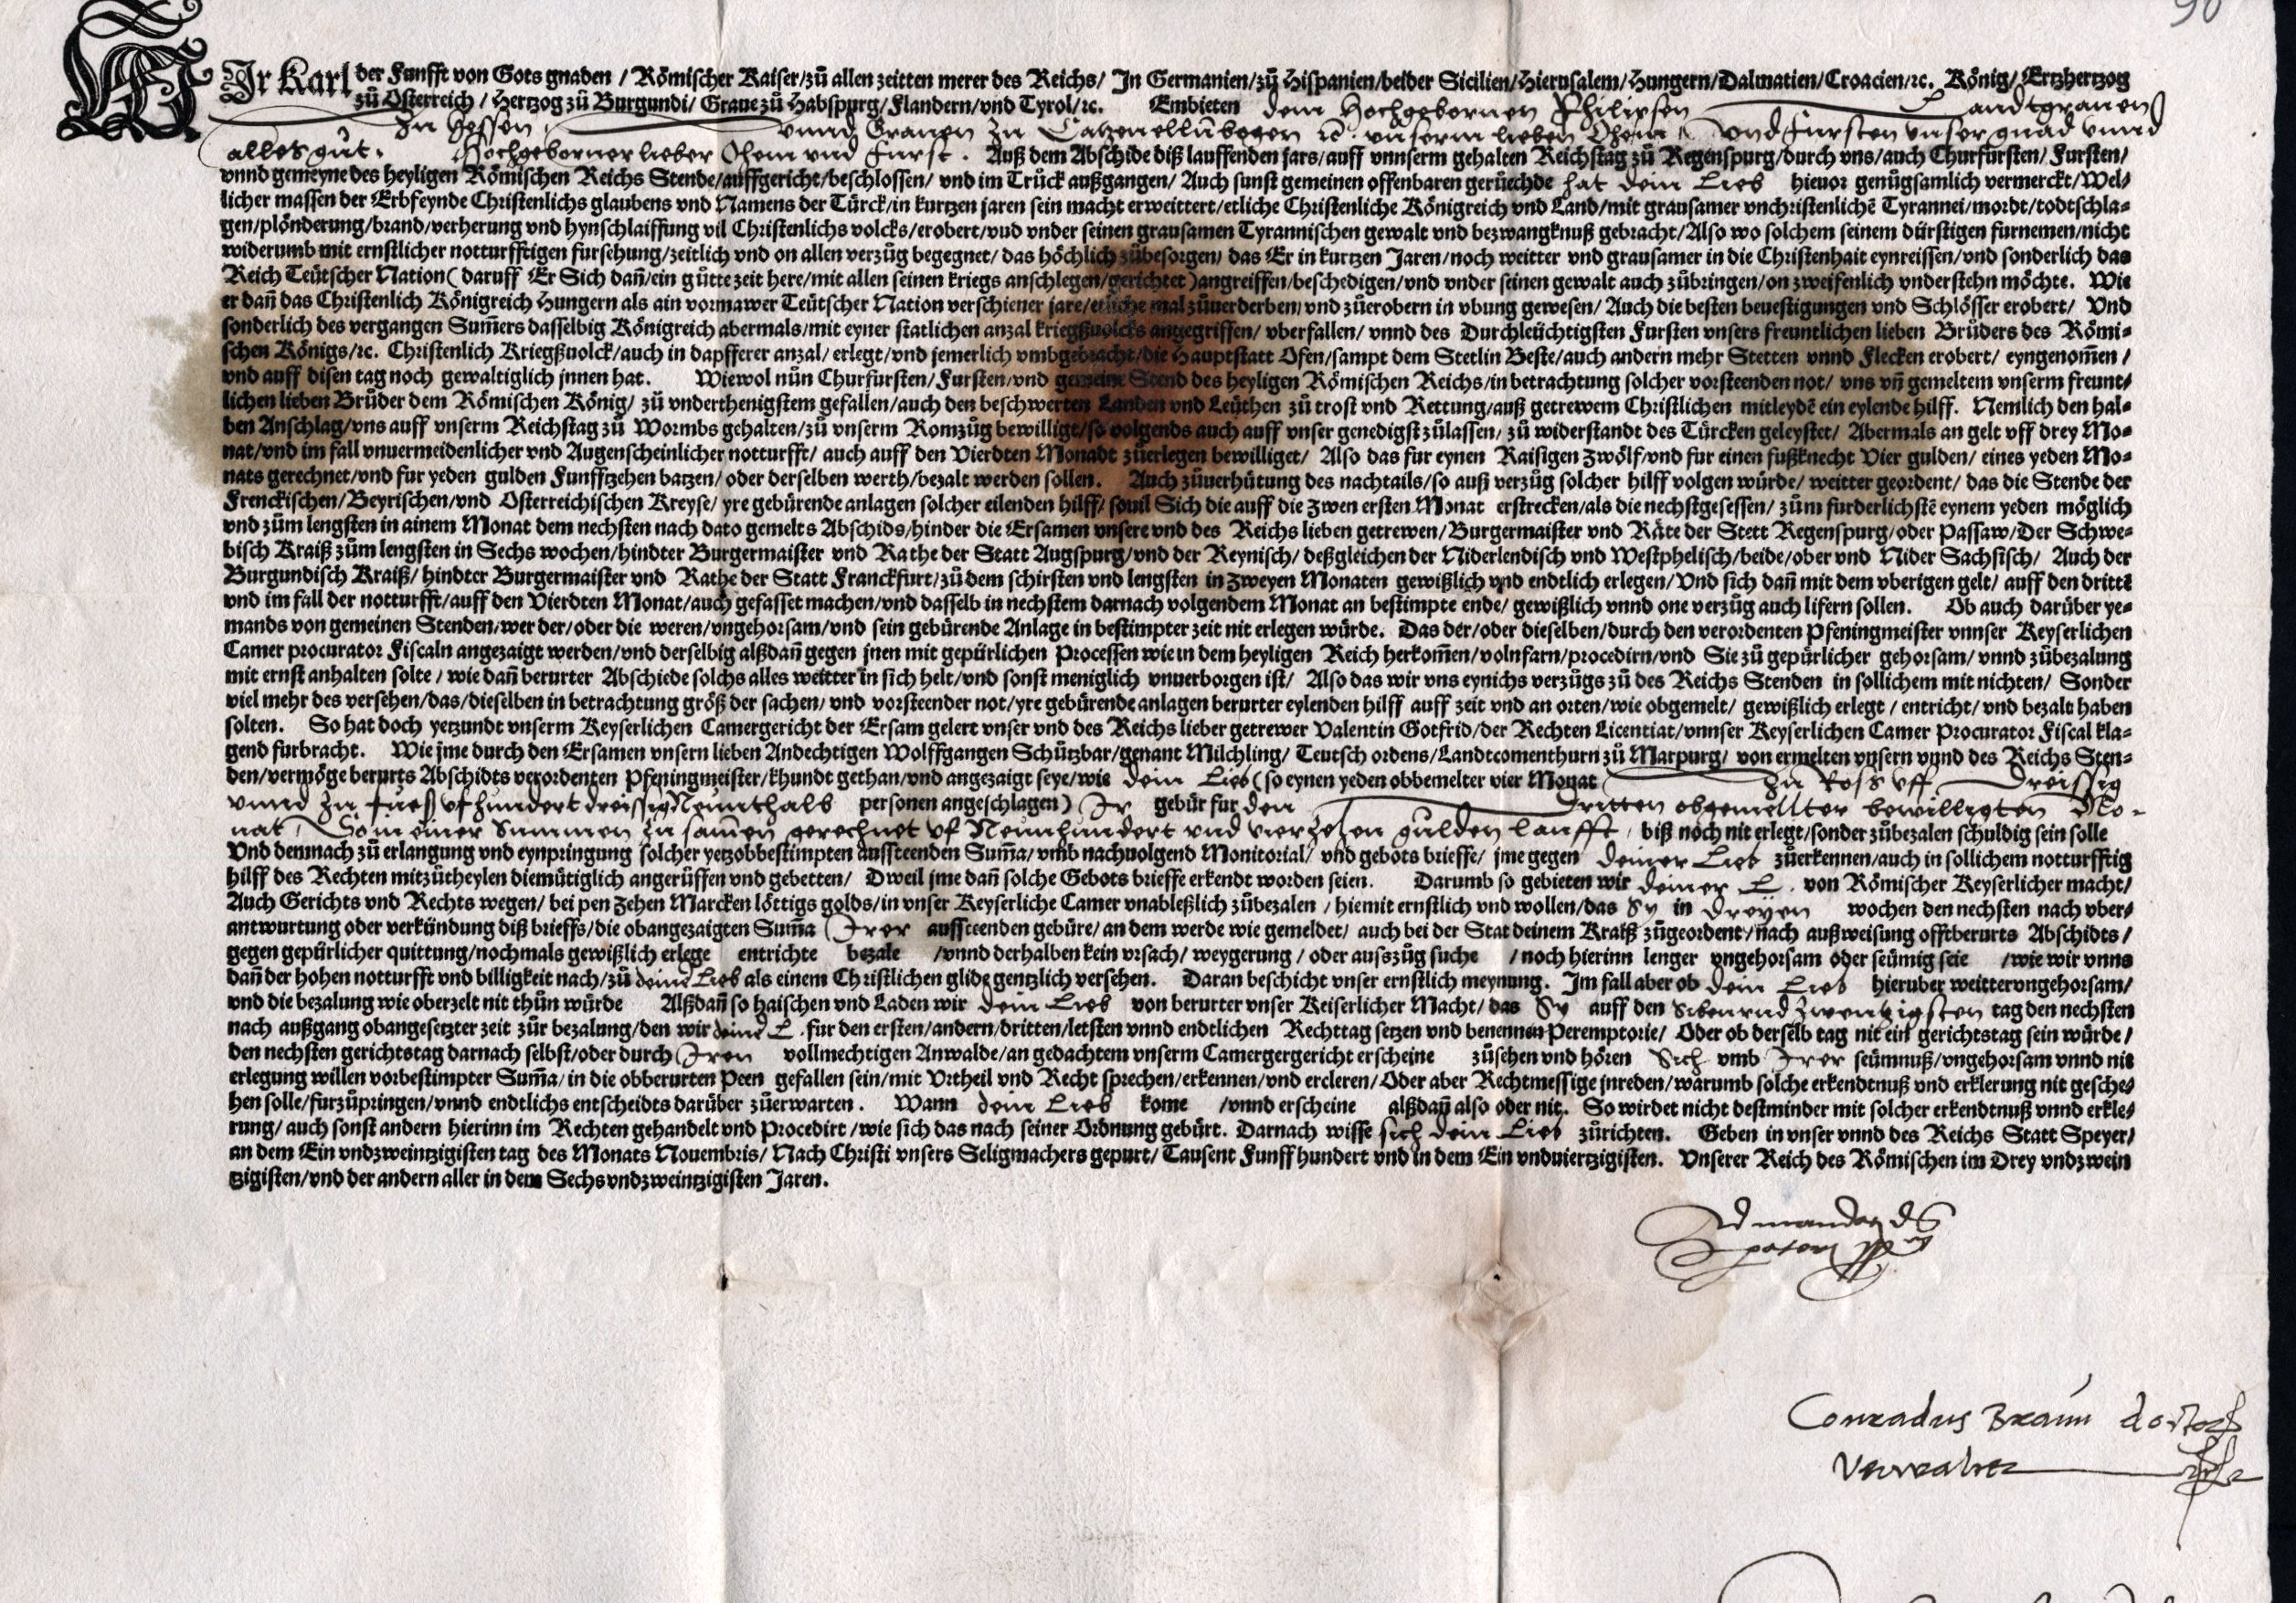 WIr Karl der Funfft von Gots gnaden / Römischer Kaiser/zů allen zeitten merer des Reichs/ In Germanien/zů Hispanien/beider Sicilien/Hierusalem/Hungern/Dalmatien/Croacien/ꝛc. König/ Ertzhertzog
zů Osterreich / Hertzog zů Burgundi/ Graue zů Habspurg/Flandern/vnd Tyrol/ꝛc. Embieten dem Hochgebornen Philipsen Landtgrauen
zu Hessen vnnd Grauen zu Catzenellnbogen ꝛc. vnserm lieben Ohem vnd fursten vnser gnad vnnd
alles gůt. Hochgeborner lieber Ohem vnd furst. Auß dem Abschide diß lauffenden jars/auff vnnserm gehalten Reichstag zů Regenspurg/durch vns/auch Churfursten/ Fursten/
vnnd gemeyne des heyligen Römischen Reichs Stende/auffgericht/beschlossen/ vnd im Trůck außgangen/ Auch sunst gemeinen offenbaren gerüechde hat dein Lieb hieuor genůgsamlich vermerckt/Wel⸗
licher massen der Erbfeynde Christenlichs glaubens vnd Namens der Türck/in kurtzen jaren sein macht erweittert/etliche Christenliche Königreich vnd Land/mit grausamer vnchristenlichē Tyrannei/mordt/todtschla⸗
gen/plönderung/brand/verherung vnd hynschlaiffung vil Christenlichs volcks/erobert/vnd vnder seinen grausamen Tyrannischen gewalt vnd bezwangknuß gebracht/Also wo solchem seinem dürstigen furnemen/nicht
widerumb mit ernstlicher notturfftigen fursehung/zeitlich vnd on allen verzůg begegnet/ das höchlich zůbesorgen/ das Er in kurtzen Jaren/noch weitter vnd grausamer in die Christenhait eynreissen/vnd sonderlich das
Reich Teütscher Nation( daruff Er Sich dañ/ein gůtte zeit here/mit allen seinen kriegs anschlegen/gerichtet )angreiffen/beschedigen/vnd vnder seinen gewalt auch zůbringen/on zweifenlich vnderstehn möchte. Wie
er dañ das Christenlich Königreich Hungern als ain vormawer Teütscher Nation verschiener jare/etliche mal zůuerderben/vnd zůerobern in vbung gewesen/ Auch die besten beuestigungen vnd Schlösser erobert/ Vnd
sonderlich des vergangen Sum̃ers dasselbig Königreich abermals/mit eyner statlichen anzal kriegßuolcks angegriffen/ vberfallen/ vnnd des Durchleüchtigsten Fursten vnsers freuntlichen lieben Brůders des Römi⸗
schen Königs/ꝛc. Christenlich Kriegßuolck/auch in dapfferer anzal/ erlegt/vnd jemerlich vmbgebracht/die Hauptstatt Ofen/sampt dem Stetlin Beste/auch andern mehr Stetten vnnd Flecken erobert/ eyngenom̃en /
vnd auff disen tag noch gewaltiglich jnnen hat. Wiewol nůn Churfursten/Fursten/vnd gemeine Stend des heyligen Römischen Reichs/in betrachtung solcher vorsteenden not/ vns vñ gemeltem vnserm freunt⸗
lichen lieben Brůder dem Römischen König/ zů vnderthenigstem gefallen/auch den beschwerten Landen vnd Leüthen zů trost vnd Rettung/auß getrewem Christlichen mitleydē ein eylende hilff. Nemlich den hal⸗
ben Anschlag/vns auff vnserm Reichstag zů Wormbs gehalten/zů vnserm Romzůg bewilligt/so volgends auch auff vnser genedigst zůlassen/ zů widerstandt des Türcken geleystet/ Abermals an gelt vff drey Mo⸗
nat/vnd im fall vnuermeidenlicher vnd Augenscheinlicher notturfft/ auch auff den Vierdten Monadt zůerlegen bewilliget/ Also das fur eynen Raisigen zwölf/vnd fur einen fußknecht Vier gulden/ eines yeden Mo⸗
nats gerechnet/vnd fur yeden gulden Funfftzehen batzen/ oder derselben werth/bezalt werden sollen. Auch zůuerhütung des nachtails/so auß verzůg solcher hilff volgen würde/ weitter geordent/ das die Stende der
Frenckischen/Beyrischen/vnd Osterreichischen Kreyse/ yre gebürende anlagen solcher eilenden hilff/ souil Sich die auff die zwen ersten Monat erstrecken/als die nechstgesessen/ zům furderlichstē eynem yeden möglich
vnd zům lengsten in ainem Monat dem nechsten nach dato gemelts Abschids/hinder die Ersamen vnsere vnd des Reichs lieben getrewen/Burgermaister vnd Räte der Stett Regenspurg/oder Passaw/Der Schwe⸗
bisch Kraiß zům lengsten in Sechs wochen/hindter Burgermaister vnd Rathe der Statt Augspurg/vnd der Reynisch/ deßgleichen der Niderlendisch vnd Westphelisch/beide/ober vnd Nider Sachsisch/ Auch der
Burgundisch Kraiß/ hindter Burgermaister vnd Rathe der Statt Franckfurt/zů dem schirsten vnd lengsten in zweyen Monaten gewißlich vnd endtlich erlegen/Vnd sich dañ mit dem vberigen gelt/ auff den drittē
vnd im fall der notturfft/auff den Vierdten Monat/auch gefasset machen/vnd dasselb in nechstem darnach volgendem Monat an bestimpte ende/ gewißlich vnnd one verzůg auch lifern sollen. Ob auch darüber ye⸗
mands von gemeinen Stenden/wer der/oder die weren/vngehorsam/vnd sein gebürende Anlage in bestimpter zeit nit erlegen würde. Das der/oder dieselben/durch den verordenten Pfeningmeister vnnser Keyserlichen
Camer procurator Fiscaln angezaigt werden/vnd derselbig alßdañ gegen jnen mit gepürlichen Processen wie in dem heyligen Reich herkom̃en/volnfarn/procedirn/vnd Sie zů gepürlicher gehorsam/ vnnd zůbezalung
mit ernst anhalten solte / wie dañ berurter Abschiede solchs alles weitter in sich helt/vnd sonst meniglich vnuerborgen ist/ Also das wir vns eynichs verzůgs zů des Reichs Stenden in sollichem mit nichten/ Sonder
viel mehr des versehen/das/dieselben in betrachtung größ der sachen/ vnd vorsteender not/yre gebürende anlagen berurter eylenden hilff auff zeit vnd an orten/wie obgemelt/ gewißlich erlegt / entricht/ vnd bezalt haben
solten. So hat doch yetzundt vnserm Keyserlichen Camergericht der Ersam gelert vnser vnd des Reichs lieber getrewer Valentin Gotfrid/der Rechten Licentiat/vnnser Keyserlichen Camer Procurator Fiscal kla⸗
gend furbracht. Wie jme durch den Ersamen vnsern lieben Andechtigen Wolffgangen Schützbar/genant Milchling/ Teutsch ordens/Landtcomenthurn zů Marpurg/ von ermelten vnsern vnnd des Reichs Sten⸗
den/vermöge berurts Abschidts verordenten Pfeningmeister/khundt gethan/vnd angezaigt seye/wie dein Lieb (so eynen yeden obbemelter vier Monat zu Ross vff dreissig
vnnd zu fueß vf hundert dreissig Neunthalb personen angeschlagen) Ir gebür fur den dritten obgemellter bewilligten Mo⸗
nat So in einer Summen zu samen gerechnet vf Neunhundert vnd vierzehen gulden laufft, biß noch nit erlegt/sonder zůbezalen schuldig sein solle
Vnd demnach zů erlangung vnd eynpringung solcher yetzobbestimpten aussteenden Sum̃a/vmb nachuolgend Monitorial/ vnd gebots brieffe/ jme gegen deiner Lieb zůerkennen/auch in sollichem notturfftig
hilff des Rechten mitzůtheylen diemütiglich angerůffen vnd gebetten/ Dweil jme dañ solche Gebots brieffe erkendt worden seien. Darumb so gebieten wir deiner L. von Römischer Keyserlicher macht/
Auch Gerichts vnd Rechts wegen/ bei pen Zehen Marcken löttigs golds/in vnser Keyserliche Camer vnableßlich zůbezalen / hiemit ernstlich vnd wollen/das Sy in dreyen wochen den nechsten nach vber⸗
antwurtung oder verkündung diß brieffs/die obangezaigten Sum̃a Irer aussteenden gebüre/an dem werde wie gemeldet/ auch bei der Stat deinem Kraiß zůgeordent/nach außweisung offtberurts Abschidts/
gegen gepürlicher quittung/nochmals gewißlich erlege entrichte bezale /vnnd derhalben kein vrsach/ weygerung / oder auszůg suche /noch hierinn lenger vngehorsam oder seümig seie /wie wir vnns
dañ der hohen notturfft vnd billigkeit nach/zů deine Lieb als einem Christlichen glide gentzlich versehen. Daran beschicht vnser ernstlich meynung. Im fall aber ob dein Lieb hieruber weitter vngehorsam/
vnd die bezalung wie oberzelt nit thůn würde Alßdañ so haischen vnd Laden wir dein Lieb von berurter vnser Keiserlicher Macht/das Sy auff den Sibenvnd Zwentzigsten tag den nechsten
nach außgang obangesetzter zeit zůr bezalung/den wir deine L. fur den ersten/andern/dritten/letsten vnnd endtlichen Rechttag setzen vnd benennen Peremptorie/ Oder ob derselb tag nit ein gerichtstag sein würde/
den nechsten gerichtstag darnach selbst/oder durch Iren vollmechtigen Anwalde/an gedachtem vnserm Camergergericht erscheine zůsehen vnd hören Sich vmb Irer seümnuß/vngehorsam vnnd nit
erlegung willen vorbestimpter Sum̃a/in die obberurten Peen gefallen sein/mit Vrtheil vnd Recht sprechen/erkennen/vnd ercleren/Oder aber Rechtmessige jnreden/warumb solche erkendtnuß vnd erklerung nit gesche⸗
hen solle/furzůpringen/vnnd endtlichs entscheidts darüber zůerwarten. Wann dein Lieb kome /vnnd erscheine alßdañ also oder nit. So wirdet nicht destminder mit solcher erkendtnuß vnnd erkle⸗
rung/ auch sonst andern hierinn im Rechten gehandelt vnd Procedirt/wie sich das nach seiner Ordnung gebürt. Darnach wisse sich dein Lieb zůrichten. Geben in vnser vnnd des Reichs Statt Speyer/
an dem Ein vndzweintzigisten tag des Monats Nouembris/ Nach Christi vnsers Seligmachers gepurt/ Tausent Funff hundert vnd in dem Ein vnduiertzigisten. Vnserer Reich des Römischen im Drey vndzwein
tzigisten/vnd der andern aller in dem Sechs vndzweintzigisten Jaren.
Ad mandatum
Conradus Braun doctor
Verwalter